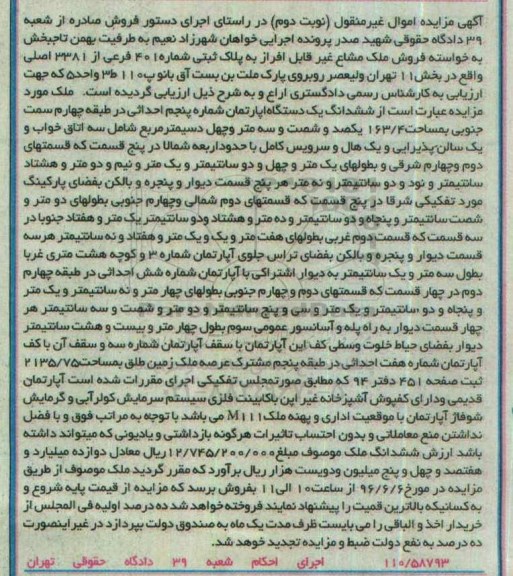 آگهی مزایده اموال غیرمنقول (نوبت دوم) در راستای اجرای دستور فروش صادره از شعبه
۳۹ دادگاه حقوقی شهید صدر پرونده اجرایی خواهان شهرزاد نعیم به طرفیت بهمن تاجبخش
به خواسته فروش ملک مشاع غیر قابل افراز به پلاک ثبتی شماره۴۰۱ فرعی از ۳۳۸۱ اصلی
واقع در بخش۱۱ تهران ولیعصر روبروی پارک ملت بن بست آق بانو پ۱۱۰ ط۳ واحد۵ که جهت
ارزیابی به کارشناس رسمی دادگستری ارجاع و به شرح ذیل ارزیابی گردیده است. ملک مورد
مزایده عبارت است از ششدانگ یک دستگاه آپارتمان شماره پنجم احداثی در طبقه چهارم سمت
جنوبی بمساحت۱۶۳/۴ یکصد و شصت و سه متر وچهل دسیمترمربع شامل سه اتاق خواب و
یک سالن پذیرایی و یک هال و سرویس کامل با حدوداربعه شمالا در پنج قسمت که قسمتهای
دوم وچهارم شرقی و بطولهای یک متر و چهل و دو سانتیمتر و یک متر و نیم و دو متر و هشتاد
سانتیمتر و نود و دو سانتیمتر و نه متر هر پنج قسمت دیوار و پنجره و بالکن بفضای پارکینگ
مورد تفکیکی شرقا در پنج قسمت که قسمتهای دوم شمالی وچهارم جنوبی بطولهای دو متر و
شصت سانتیمتر و پنجاه و دو سانتیمتر و ده متر و هشتاد ودو سانتیمتر یک متر و هفتاد جنوبا در
سه قسمت که قسمت دوم غربی بطولهای هفت متر و یک و یک متر و هفتاد و نه سانتیمتر هرسه
قسمت دیوار و پنجره و بالکن بفضای تراس جلوی آپارتمان شماره ۳ و کوچه هشت متری غربا
بطول سه متر و یک سانتیمتر به دیوار اشتراکی با آپارتمان شماره شش احداثی در طبقه چهارم
دوم در چهار قسمت که قسمتهای دوم و چهارم جنوبی بطولهای چهار متر و نه سانتیمتر و یک متر
و پنجاه و دو سانتیمتر و یک متر و سی و پنج سانتیمتر و دو متر و شصت و سه سانتیمتر هر
چهار قسمت دیوار به راه پله و آسانسور عمومی سوم بطول چهار متر و بیست و هشت سانتیمتر
دیوار بفضای حیاط خلوت وسطی کف این آپارتمان با سقف آپارتمان شماره سه و سقف آن با کف
آپارتمان شماره هفت احداثی در طبقه پنجم مشترک عرصه ملک زمین طلق بمساحت۲۱۳۵/۷۵
ثبت صفحه ۴۵۱ دفتر ۹۴ که مطابق صورتمجلس تفکیکی اجرای مقررات شده است آپارتمان
قدیمی ودارای کفپوش آشپزخانه غیر اپن باکابینت فلزی سیستم سرمایش کولرآبی و گرمایش
شوفاژ آپارتمان با موقعیت اداری و پهنه ملکM111 می باشد با توجه به مراتب فوق و با فضل
نداشتن منع معاملاتی و بدون احتساب تاثیرات هرگونه بازداشتی و یادیونی که میتواند داشته
باشد ارزش ششدانگ ملک موصوف مبلغ۱۲/۷۴۵/۲۰۰/۰۰۰ریال معادل دوازده میلیارد و
هفتصد و چهل و پنج میلیون ودویست هزار ریال برآورد که مقرر گردید ملک موصوف از طریق
مزایده در مورخ۹۶/۶/۶ از ساعت۱۰ الی۱۱ بفروش برسد که مزایده از قیمت پایه شروع و
به کسانیکه بالاترین قمیت را پیشنهاد نمایند فروخته خواهد شد ده درصد اولیه فی المجلس از
خریدار اخذ و الباقی را می بایست ظرف مدت یک ماه به صندوق دولت بپردازد در غیر اینصورت
ده درصد به نفع دولت ضبط و مزایده تجدید خواهد شد.
۱۱۰/۵۸۷۹۳ اجرای احکام شعبه ۳۹ دادگاه حقوقی تهران